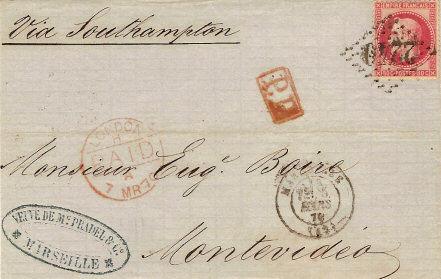 Via Southampton
EMPIRE FRANCAIS
2240
P.P.
LONDON
PAID
7 MR 70
Monsieur Eug. Boire
MARSEILLE
MARS
70
(12)
VEUVE DE Mce PRADEL & Co
MARSEILLE
Montevideo